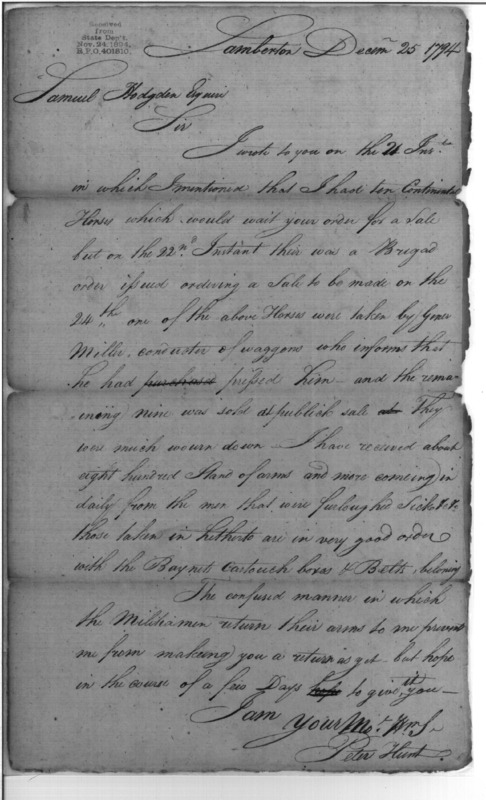 Received
from
State Dep't.
Nov. 24. 1894,
R.P.O. 401810.
Lamberton Decm 25 1794
Samuel Hodgden Esquir
Sir
I wrote to you on the 21 Inst
in which I mentioned that I had ten Continental
Horses which would wait your order for a Sale
but on the 22nd Instant their was a Brigad
order issued ordering a Sale to be made on the
24th one of the above Horses were taken by
Miller, conducter of waggons who informs that
he had purchased pressed him - and the remai-
-neing nine was sold at publick sale at They
were much wourn down - I have received about
eight hundred Stand of arms and more comeing in
daily from the men that were furloughed Sick &.&.
those taken in hetherto are in very good order
with the Baynets Cartouch boxes & Belts, belong
The confused manner in which
the Militiamen return their arms to me prevents
me from makeing you a return as yet - but hope
in the course of a few Days hope to give it you -
I am your Mot. Hm. S.
Peter Hunt.